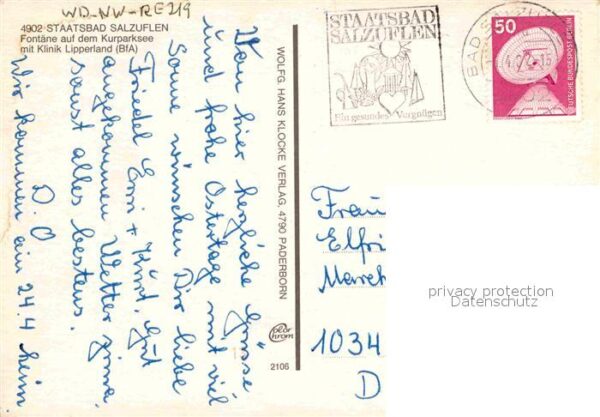 WD-NW-RE219
4902 STAATSBAD SALZUFLEN
Fontäne auf dem Kurparksee
mit Klinik Lipperland (BfA)
Von hier herzliche Grüsse
und frohe Ostertage mit viel
Sonne wünschen Dir liebe
Friedel Erni + Kurt. Gut
angekommen Wetter prima
sonst alles bestens.
D. O
Wir kommen am 24.4 heim
WOLFG. HANS KLOCKE VERLAG, 4790 PADERBORN
color
chrom
2106
STAATSBAD
SALZUFLEN
Ein gesundes Vergnügen
BAD SALZUFLEN
50
DEUTSCHE BUNDESPOST BERLIN
Frau
Elfri
March
1034
D
privacy protection
Datenschutz